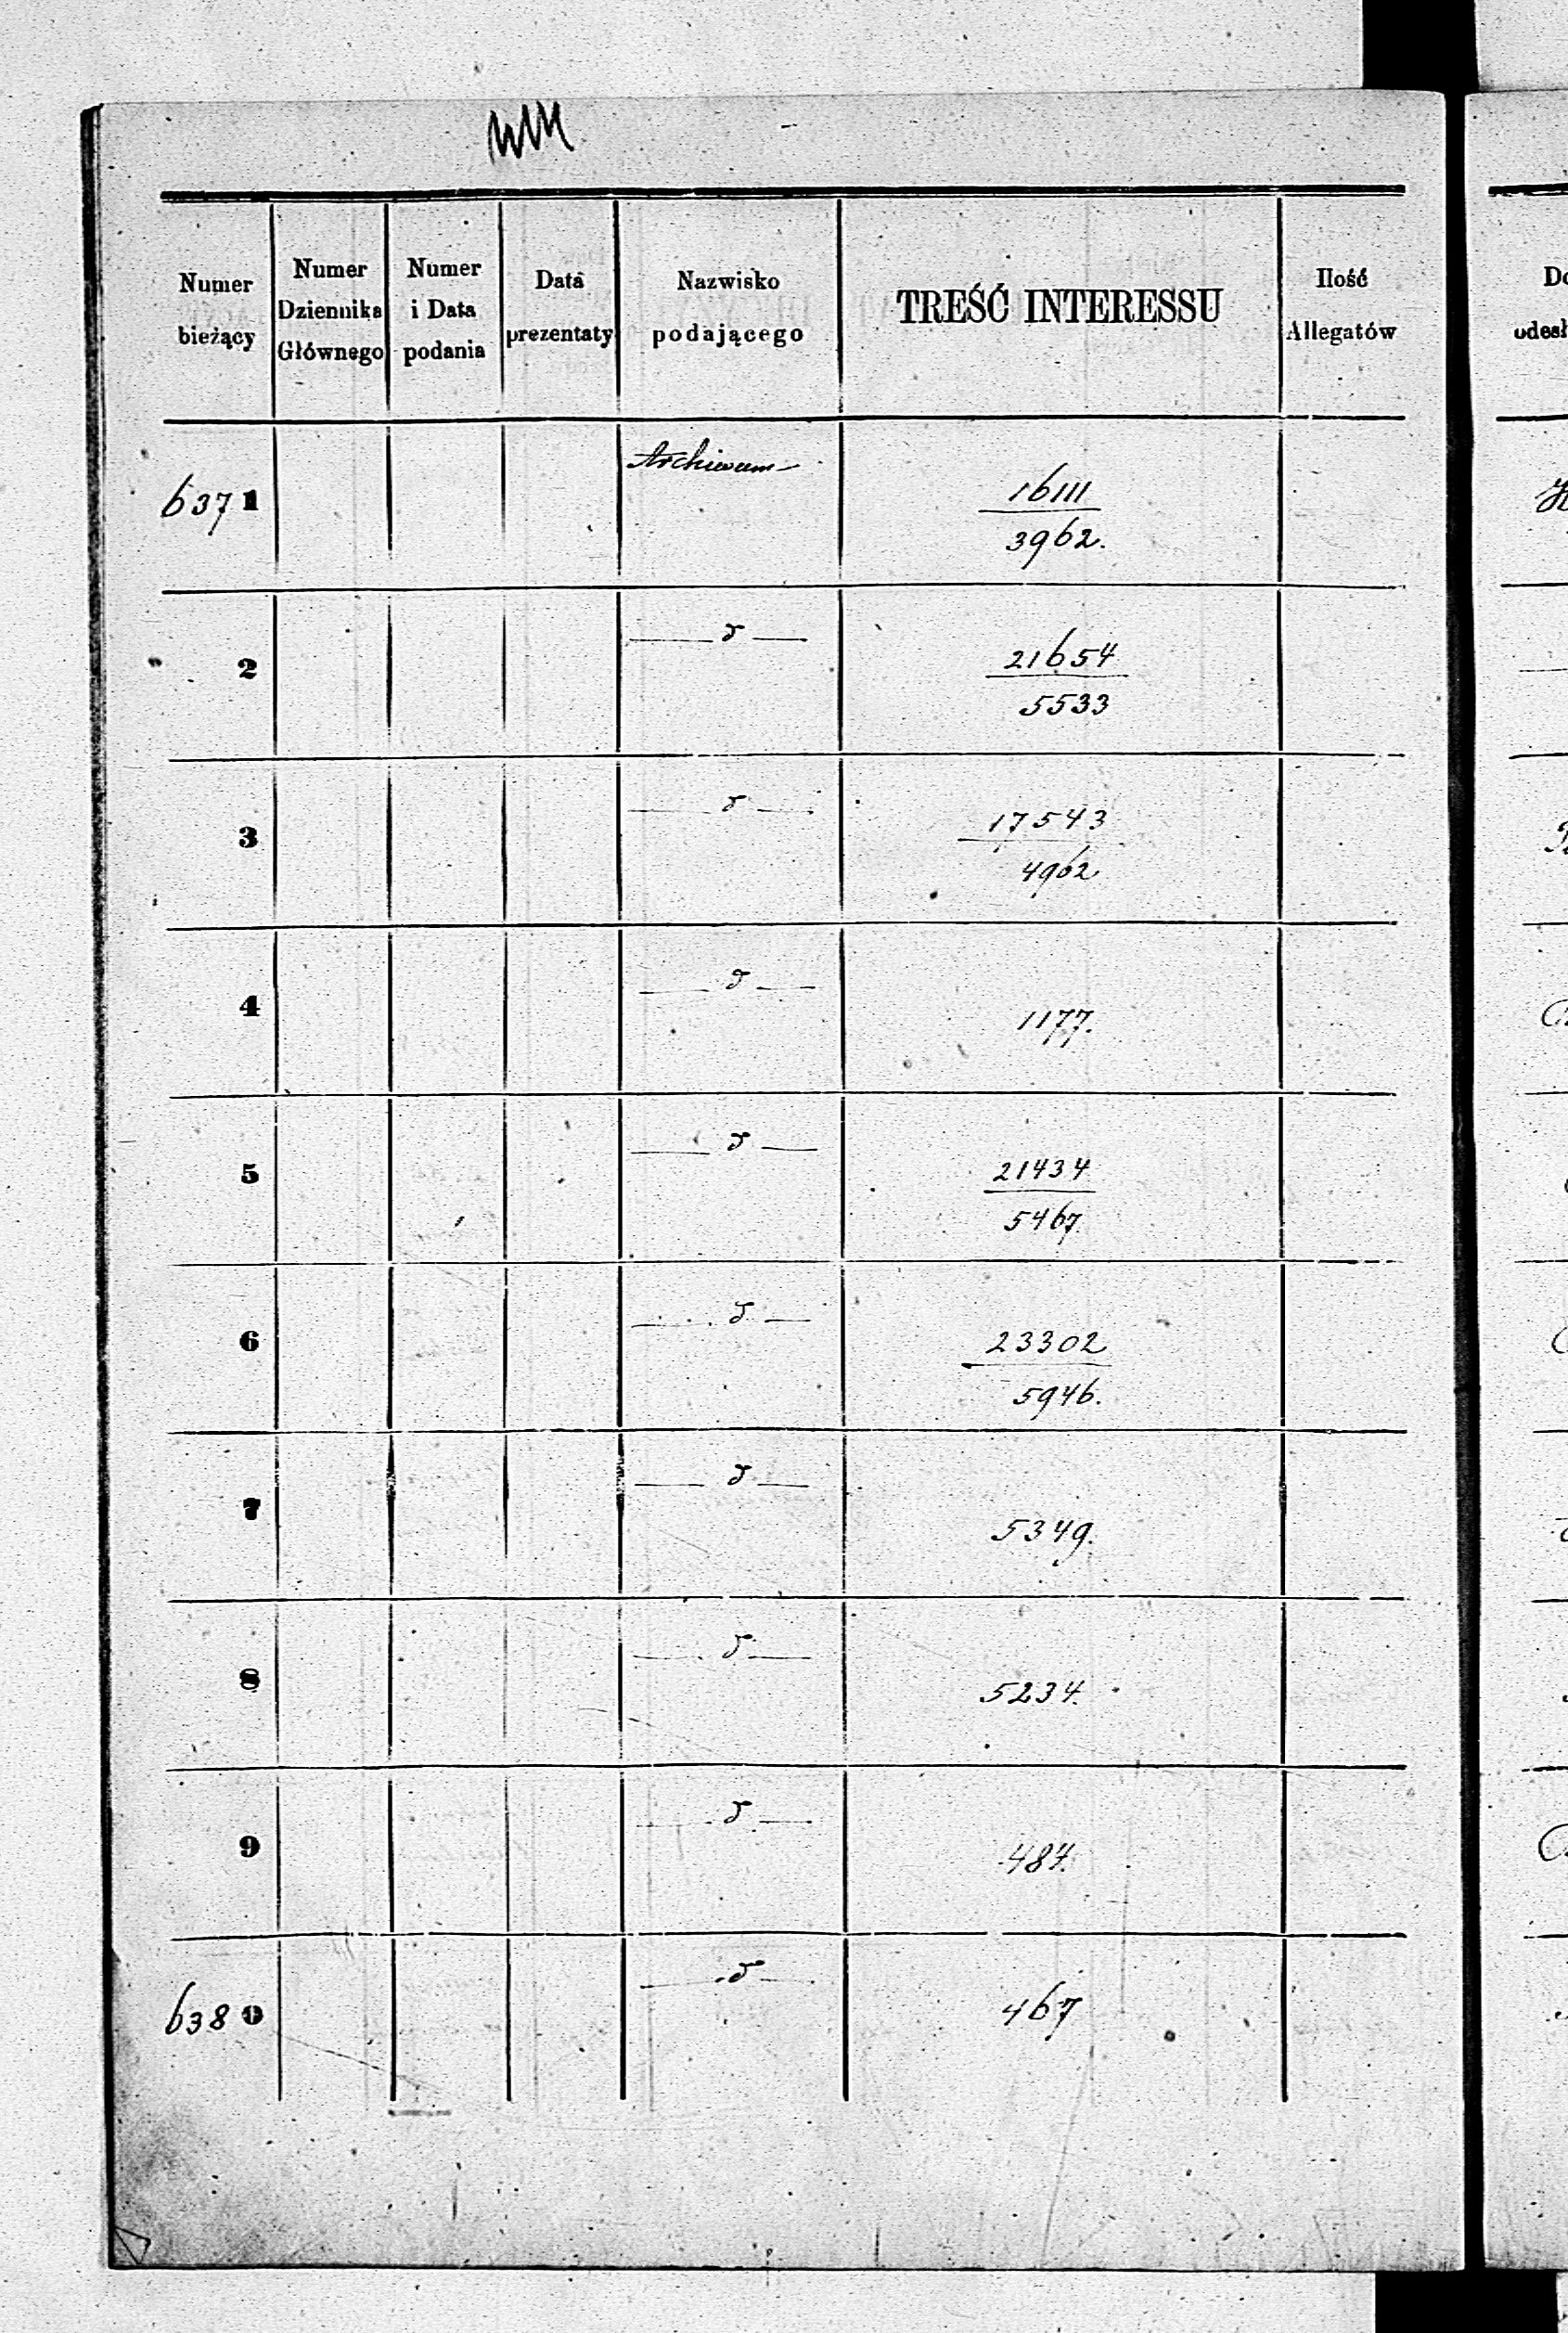 Numer bieżący
Numer Dziennika Głównego
Numer i Data podania
Data prezentaty
Nazwisko podającego
TREŚĆ INTERESSU
Ilość Allegatów
6371
Archiwum
16111
3962.
2
21654
5533
3
17543
4962
4
1177.
5
21434
5467
6
23302
5946.
7
5349.
8
5234.
9
487.
6380
467